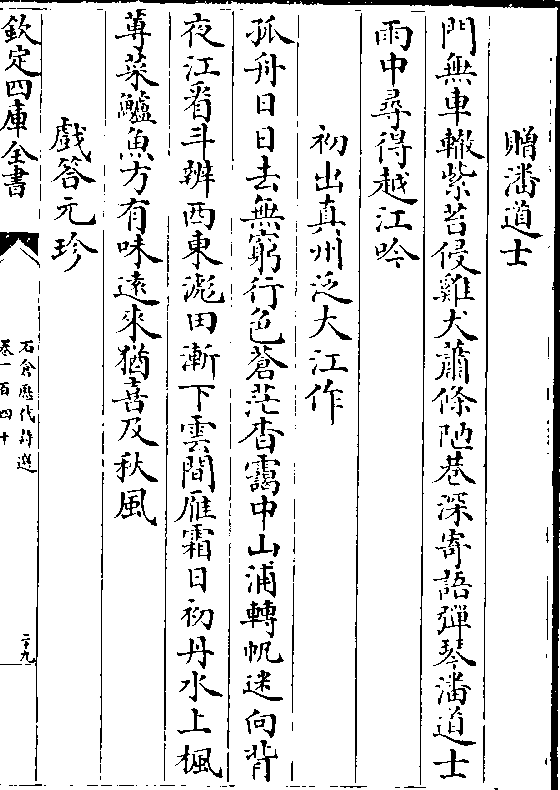 贈潘道士
門無車轍紫苔侵雞犬蕭條陋巷深寄語彈琴潘道士
雨中尋得越江吟
初出真州泛大江作
孤舟日日去無窮行色蒼茫杳靄中山浦轉帆迷向背
夜江看斗辨西東滮田漸下雲間雁霜日初丹水上楓
蓴菜鱸魚方有味遠來猶喜及秋風
戲答元珍
欽定四庫全書
石倉歷代詩選
卷一百四十
二十九